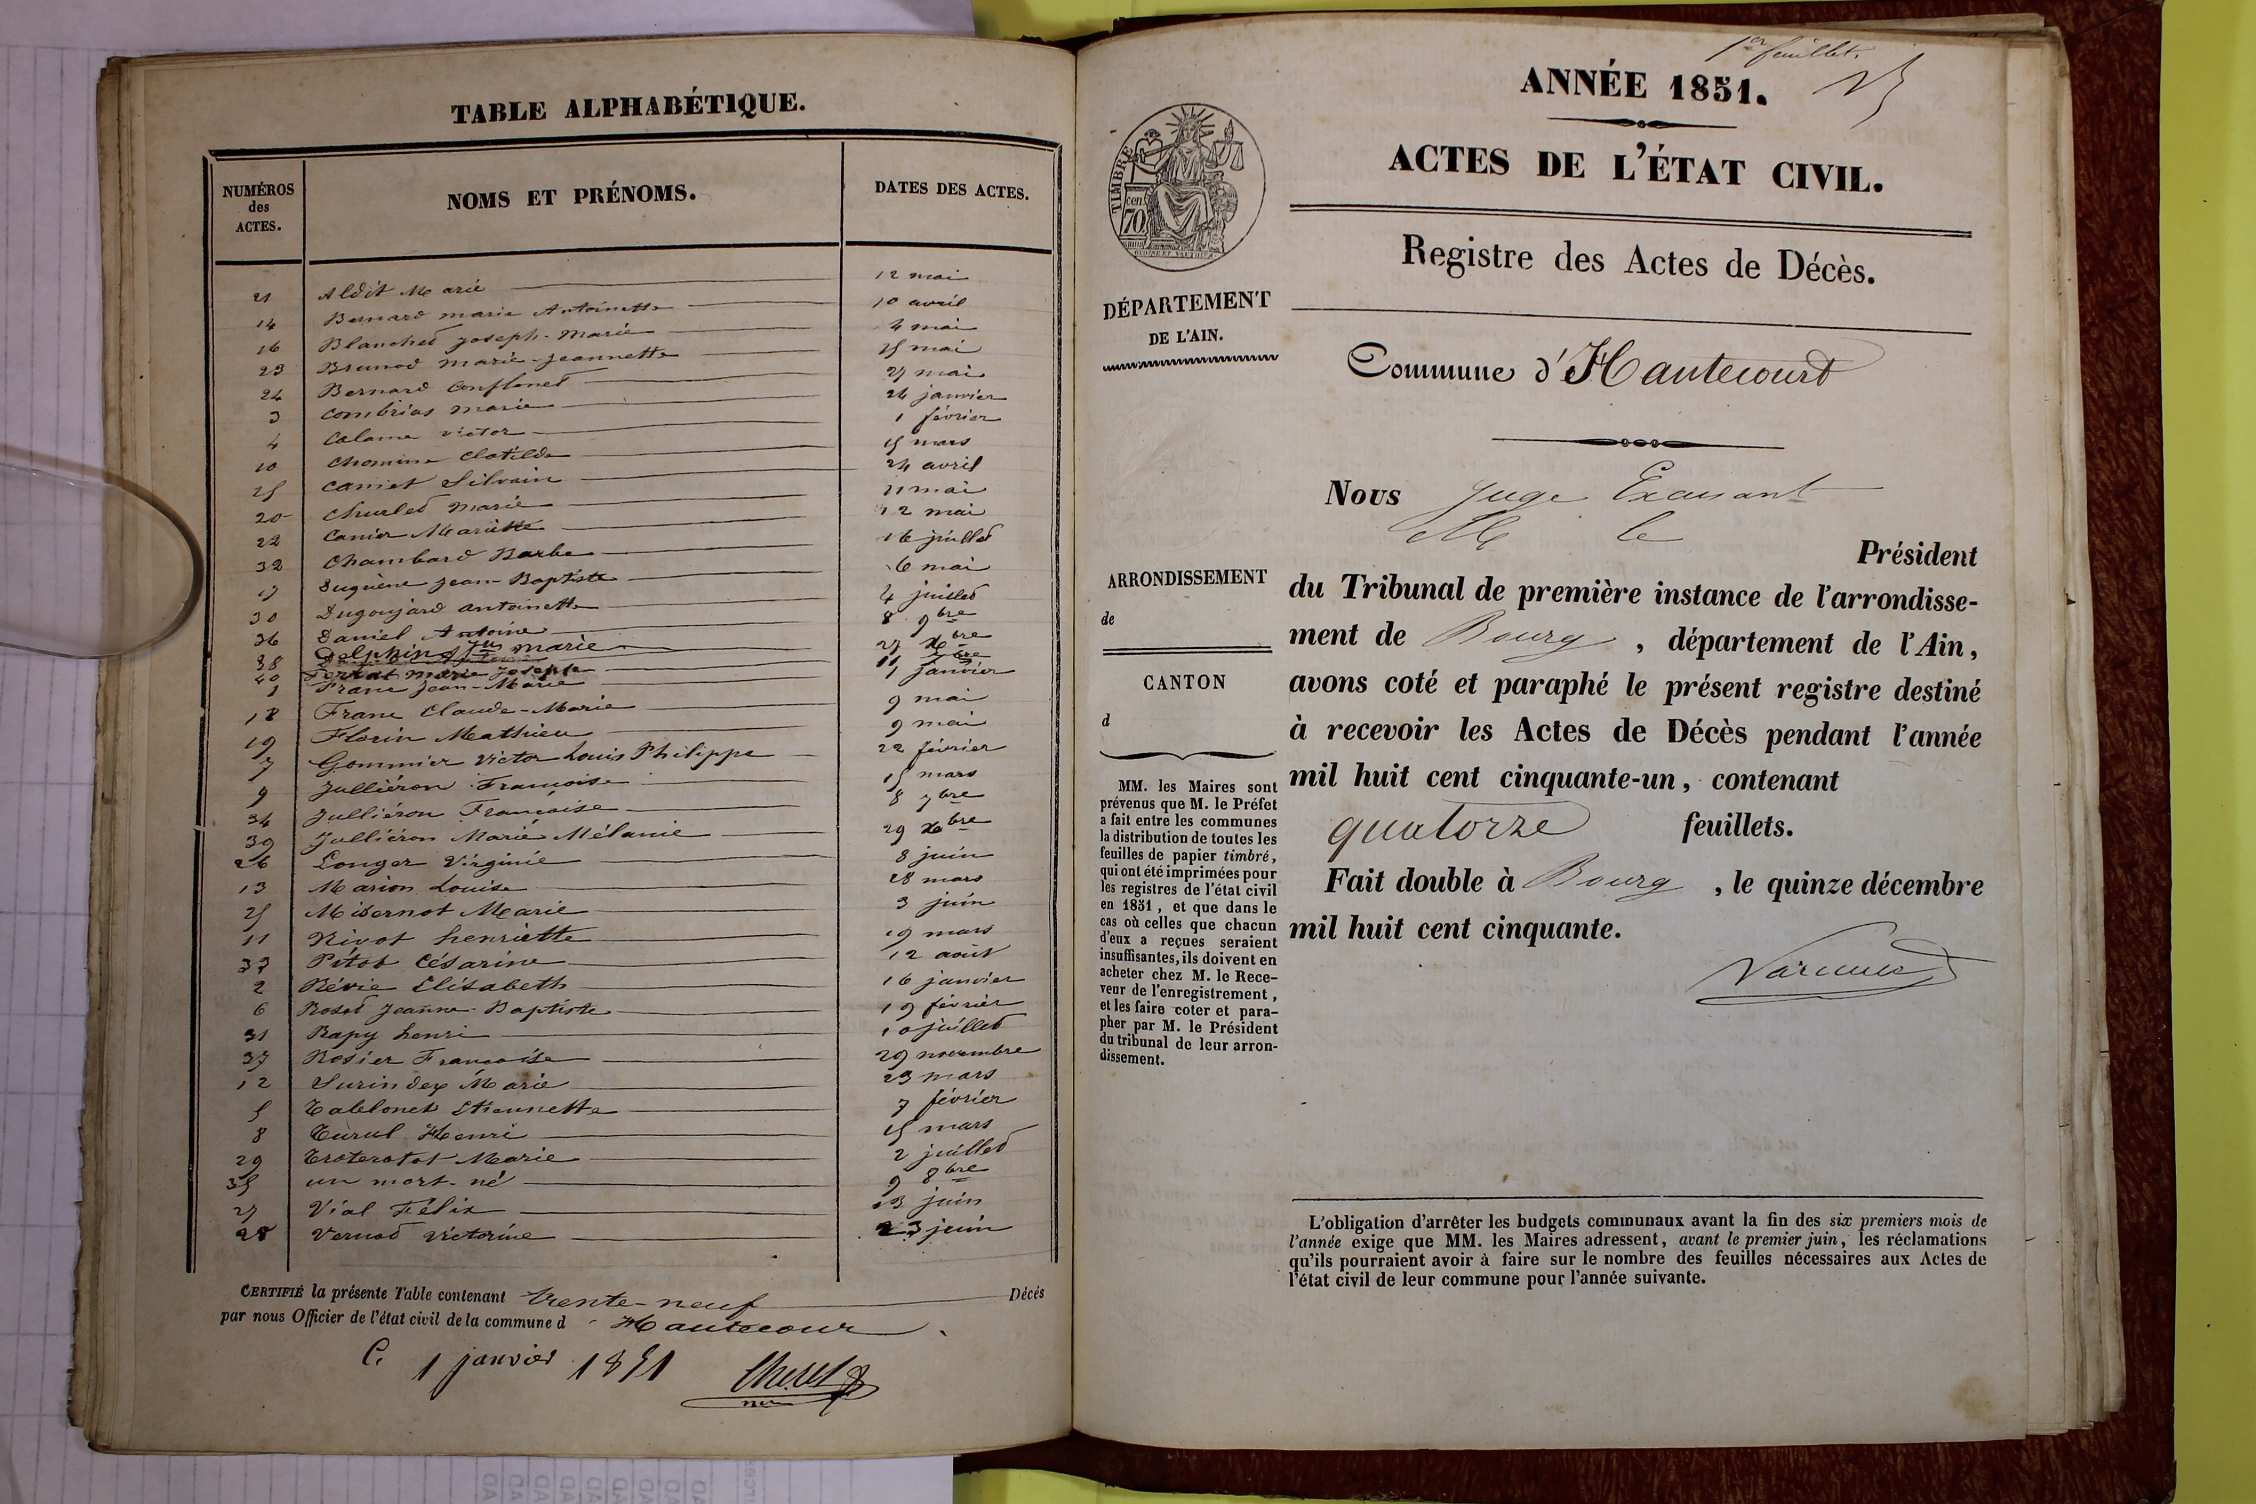 TABLE ALPHABÉTIQUE.
NUMÉROS des ACTES. NOMS ET PRÉNOMS. DATES DES ACTES.
21 Aldit Marie 12 mai
14 Bernard marie Antoinette 10 avril
16 Blanched Joseph-Marie 4 mai
23 Brunod marie-Jeannette 15 mai
24 Bernard 27 mai
3 Combrias marie 24 janvier
4 Calame victor 1 février
10 Chomine Clotilde 15 mars
15 Caniet Silvain 24 avril
20 Churled marie 11 mai
22 Canier Mariette 12 mai
32 Chambard Barbe 16 juilled
17 Duguène Jean-Baptiste 6 mai
30 Dugoujard antoinette 4 juilled
36 Daniel Antoine 8 9bre
38 Delphin marie 27 Xbre
40 Ferrat marie Joseph
1 Franc Jean-Marie 1 janvier
18 Franc Claude-Marie 9 mai
19 Florin Mathieu 9 mai
7 Gommier Victor Louis Philippe 22 février
9 Julliéron Françoise 15 mars
34 Julliéron Françoise 8 7bre
39 Julliéron Marie Mélanie 29 Xbre
26 Longer Virginie 8 juin
13 Marion Louise 28 mars
25 Midernot Marie 3 juin
11 Nivot henriette 19 mars
33 Pitot Césarine 12 août
2 Révie Elisabeth 16 janvier
6 Rosed Jeanne-Baptiste 19 février
31 Rapy henri 10 juilled
37 Rosier Françoise 29 novembre
12 Surindex Marie 23 mars
5 Tablonet Etiennette 7 février
8 Turul Henri 15 mars
29 Troterotot Marie 2 juilled
35 un mort-né 9 8bre
27 Vial Félix 23 juin
28 Vernod Victorine 23 juin
CERTIFIÉ la présente Table contenant trente-neuf Décés
par nous Officier de l'état civil de la commune d Hautecour
C. 1 janvier 1851
1er feuillet.
ANNÉE 1851.
ACTES DE L'ÉTAT CIVIL.
TIMBRE
cen.
70
Registre des Actes de Décès.
DÉPARTEMENT
DE L'AIN.
Commune d'Hautecourt
Nous Juge Exausant
M le
Président
ARRONDISSEMENT
de
CANTON
d
du Tribunal de première instance de l'arrondisse-
ment de Bourg, département de l'Ain,
avons coté et paraphé le présent registre destiné
à recevoir les Actes de Décès pendant l'année
mil huit cent cinquante-un, contenant
quatorze feuillets.
Fait double à Bourg, le quinze décembre
mil huit cent cinquante.
MM. les Maires sont
prévenus que M. le Préfet
a fait entre les communes
la distribution de toutes les
feuilles de papier timbré,
qui ont été imprimées pour
les registres de l'état civil
en 1851, et que dans le
cas où celles que chacun
d'eux a reçues seraient
insuffisantes, ils doivent en
acheter chez M. le Rece-
veur de l'enregistrement,
et les faire coter et para-
pher par M. le Président
du tribunal de leur arron-
dissement.
L'obligation d'arrêter les budgets communaux avant la fin des six premiers mois de
l'année exige que MM. les Maires adressent, avant le premier juin, les réclamations
qu'ils pourraient avoir à faire sur le nombre des feuilles nécessaires aux Actes de
l'état civil de leur commune pour l'année suivante.